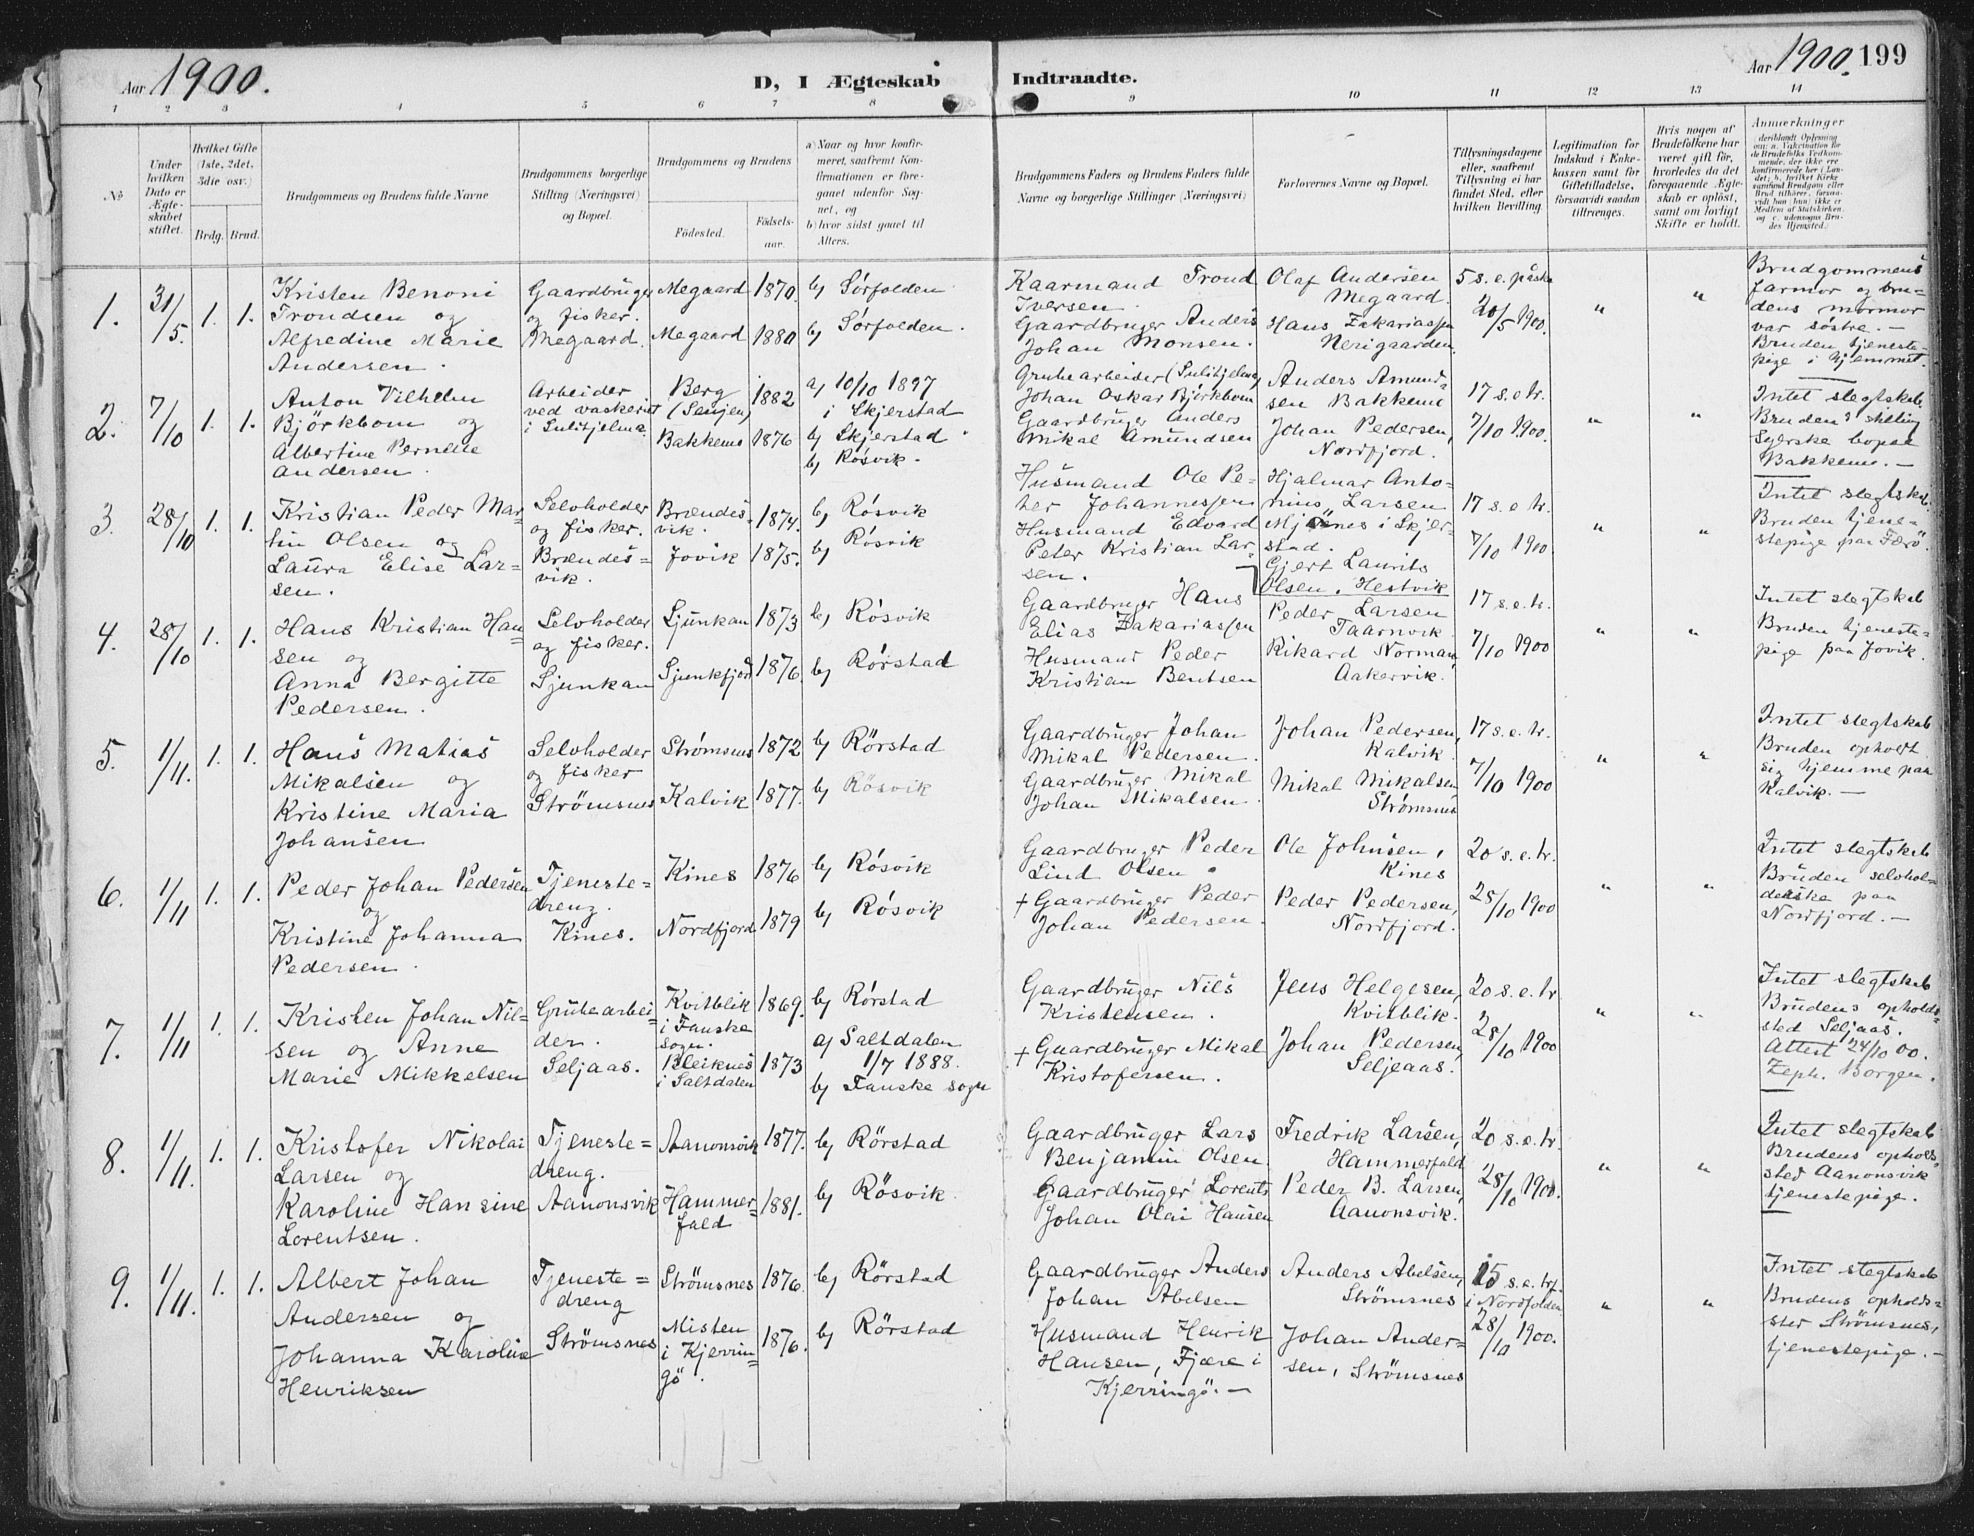 Aar 1900.
D, I Ægteskab Indtraadte.
Aar 1900. 199
1 2 3 4 5 6 7 8 9 10 11 12 13 14
No
Under hvilken Dato er Ægteskabet stiftet.
Hvilket Gifte (1ste, 2det, 3die osv.)
Brdg. Brud.
Brudgommens og Brudens fulde Navne
Brudgommens borgerlige Stilling (Næringsvei) og Bopæl.
Brudgommens og Brudens
Fødested. Fødselsaar.
a) Naar og hvor konfirmeret, saafremt Konfirmationen er foregaaet udenfor Sognet, og
b) hvor sidst gaaet til Alters.
Brudgommens Faders og Brudens Faders fulde Navne og borgerlige Stillinger (Næringsvei)
Forlovernes Navne og Bopæl.
Tillysningsdagene eller, saafremt Tillysning ei har fundet Sted, efter hvilken Bevilling.
Legitimation for Indskud i Enkekassen samt for Giftetilladelse, forsaavidt saadan tiltrænges.
Hvis nogen af Brudefolkene har været gift før, hvorledes da det foregaaende Ægteskab er opløst, samt om lovligt Skifte er holdt.
Anmerkninger
1. 31/5. 1. 1.
Kristen Benoni
Trondsen og
Alfredine Marie
Andersen.
Gaardbruger
og fisker.
Megaard.
Megaard 1870.
Megaard 1880
b) Sørfolden
b) Sørfolden.
Kaarmand Trond
Iversen.
Gaardbruger Anders
Johan Monsen.
Olaf Andersen
Megaard.
Hans Zakariassen
Nerigaarden.
5 s. e. påske
20/5 1900.
" "
Brudgommens
farmor og bru-
dens mormor
var søstre. —
Bruden tjeneste-
pige i hjemmet.
2. 7/10 1. 1.
Anton Vilhelm
Björkbom og
Albertine Pernelle
Andersen.
Arbeider
ved vaskeriet
i Sulitjelma
Berg
(Senjen) 1882
Bakkemo 1876
a) 10/10 1897
i Skjerstad
b) Skjerstad
b) Røsvik.
Grubearbeider (Sulitjelma)
Johan Oskar Björkbom
Gaardbruger Anders
Mikal Amundsen
Anders Amund-
sen Bakkemo
Johan Pedersen,
Nordfjord.
17 s. e. tr.
7/10 1900.
" "
Intet slegtskab.
Brudens stilling
Syerske bopæl
Bakkemo. —
3. 28/10 1. 1.
Kristian Peder Mar-
tin Olsen og
Laura Elise Lar-
sen.
Selvholder
og fisker.
Brændes-
vik.
Brændes-
vik. 1874.
Jovik 1875.
b) Røsvik
b) Røsvik
Husmand Ole Pe-
ter Johannessen
Husmand Edvard
Peter Kristian Lar-
sen.
Hjalmar Anto-
nius Larsen
Mjønes i Skjer-
stad.
Gjert Laurits
Olsen, Hestvik
17 s. e. tr.
7/10 1900
" "
Intet slegtskab.
Bruden tjene-
stepige paa Færö.
4. 28/10 1. 1.
Hans Kristian Han-
sen og
Anna Bergitte
Pedersen.
Selvholder
og fisker.
Sjunkan
Sjunkan 1873
Sjunkfjord 1876.
b) Røsvik
b) Rørstad
Gaardbruger Hans
Elias Zakariassen
Husmand Peder
Kristian Bentsen
Peder Larsen
Taarnvik
Rikard Norman
Aakervik.
17 s. e. tr.
7/10 1900
" "
Intet slegtskab
Bruden tjeneste-
pige paa Jovik.
5. 1/11. 1. 1.
Hans Matias
Mikalsen og
Kristine Maria
Johansen
Selvholder
og fisker
Strömsnes
Strømsnes 1872
Kalvik 1877.
b) Rörstad
b) Røsvik
Gaardbruger Johan
Mikal Pedersen.
Gaardbruger Mikal
Johan Mikalsen.
Johan Pedersen,
Kalvik.
Mikal Mikalsen
Strømsnes
17 s. e. tr.
7/10 1900
" "
Intet slegtskab
Bruden opholdt
sig hjemme paa
Kalvik. —
6. 1/11 1. 1.
Peder Johan Pedersen
og
Kristine Johanna
Pedersen.
Tjeneste-
dreng.
Kines.
Kines 1876
Nordfjord 1879
b) Røsvik
b) Røsvik
Gaardbruger Peder
Lind Olsen.
+ Gaardbruger Peder
Johan Pedersen.
Ole Johnsen,
Kines
Peder Pedersen,
Nordfjord.
20 s. e. tr.
28/10 1900
" "
Intet slegtskab
Bruden selvhol-
derske paa
Nordfjord. —
7. 1/11 1. 1.
Kristen Johan Nil-
sen og Anne
Marie Mikkelsen
Grubearbei-
der.
Seljaas.
Kvitblik
i Fauske
sogn. 1869.
Bleiknes
i Saltdalen 1873
b) Rørstad
a) Saltdalen
1/7 1888.
b) Fauske sogn
Gaardbruger Nils
Kristensen.
+ Gaardbruger Mikal
Kristofersen.
Jens Helgesen,
Kvitblik.
Johan Pedersen,
Seljeaas.
20 s. e. tr
28/10 1900
" "
Intet slegtskab
Brudens opholds-
sted Seljaas.
Attest 24/10 00.
Zeph. Borgen.
8. 1/11. 1. 1.
Kristofer Nikolai
Larsen og
Karoline Hansine
Lorentsen.
Tjeneste-
dreng.
Aanonsvik
Aanonsvik 1877.
Hammer-
fald 1881.
b) Rörstad
b) Røsvik.
Gaardbruger Lars
Benjamin Olsen.
Gaardbruger Lorents
Johan Olai Hansen
Fredrik Larsen,
Hammerfald
Peder B. Larsen,
Aanonsvik.
20 s. e. tr.
28/10 1900.
" "
Intet slegtskab
Brudens opholds-
sted Aanonsvik
tjenestepige.
9. 1/11. 1. 1.
Albert Johan
Andersen og
Johanna Karoline
Henriksen
Tjeneste-
dreng
Strömsnes
Strömsnes 1876.
Misten
i Kjerrin-
gö. 1876.
b) Rörstad
b) Rörstad
Gaardbruger Anders
Johan Abelsen
Husmand Henrik
Hansen, Fjære i
Kjerringö. —
Anders Abelsen,
Strömsnes
Johan Ander-
sen, Strömsnes
15 s. e. tr.
i Nordfolden
28/10 1900.
" "
Intet slegtskab
Brudens opholds-
sted Strömsnes,
tjenestepige. —